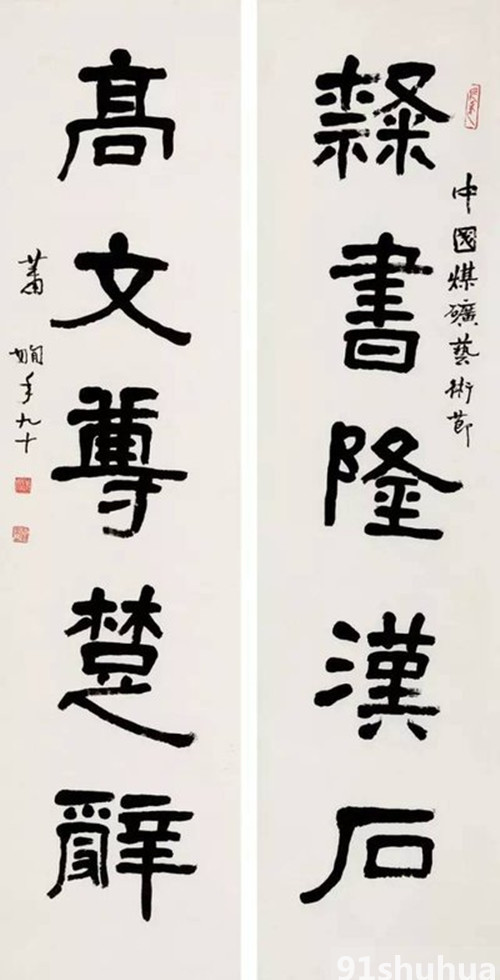 中國煤礦藝術節
隸書隆漢石
高文尊楚辭
蕭嫻年九十
91shuhua